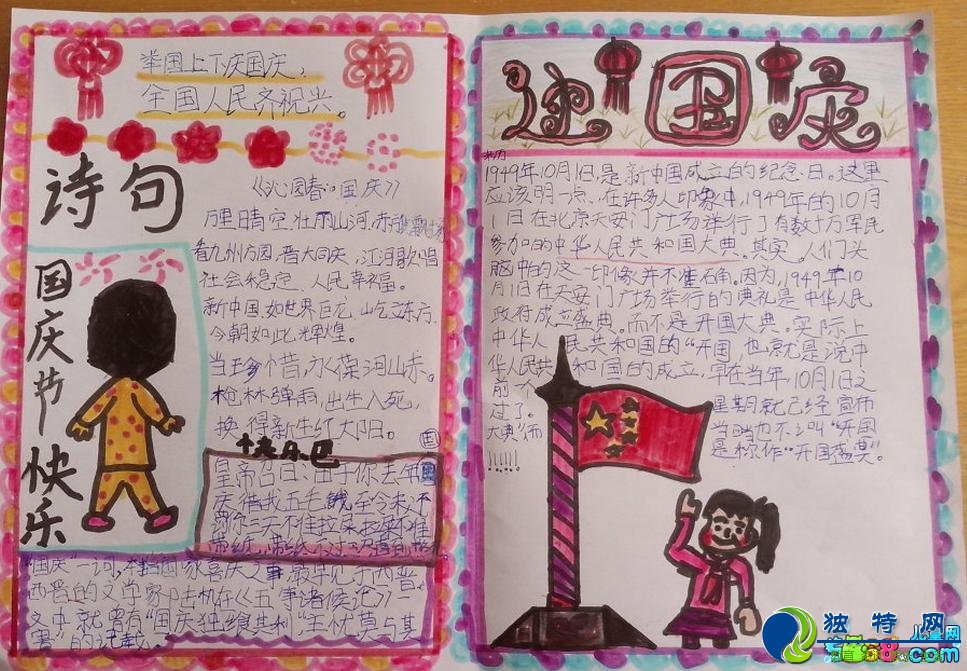 举国上下庆国庆，
全国人民齐祝兴。
诗句
《沁园春·国庆》
万里晴空，壮丽山河，赤
看九州方园，普天同庆，江河歌唱
社会稳定，人民幸福。
新中国，如世界巨龙，屹立东方，
今朝如此辉煌。
当 个昔，水 河山赤。
枪林弹雨，出生入死，
换得新生红太阳。
国庆节快乐
快乐巴
国庆
皇帝召曰：由于你去年
庆借我五毛 至今未
两你三天不准拉屎，拉屎不准
带纸，
"国庆"一词，本指国家喜庆之事，最早见于西晋
西晋的文学家 机在《五等诸侯记》一
文中就曾有"国庆独飨其利，主忧莫与其
害"的记载。
迎国庆
来历
1949年10月1日，是新中国成立的纪念日。这里
应该明一点，在许多人印象中，1949年的10月
1日在北京天安门广场举行了有数十万军民
参加的中华人民共和国大典。其实，人们头
脑中的这一印像并不准确。因为，1949年10
月1日在天安门广场举行的典礼是中华人民
政府成立盛典。而不是开国大典。实际上
中华人民共和国的"开国，也就是说中
华人民共和国的成立，早在当年，10月1日之
前一个星期就已经宣布
过了。当时也不叫"开国
大典"而是称作"开国盛典"。
!!!!!!
独特网
儿童网
.com